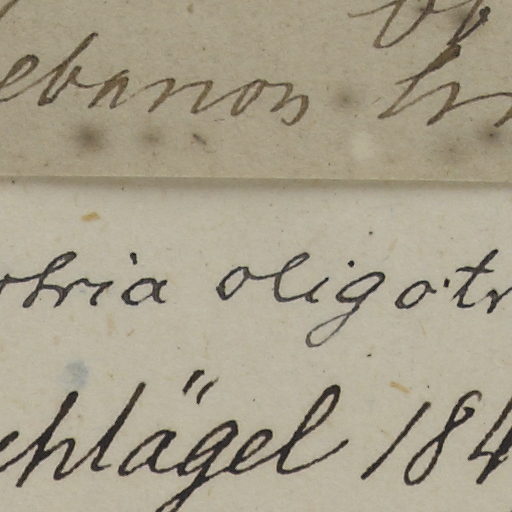 ebanon
otria oligotr
chlägel 184